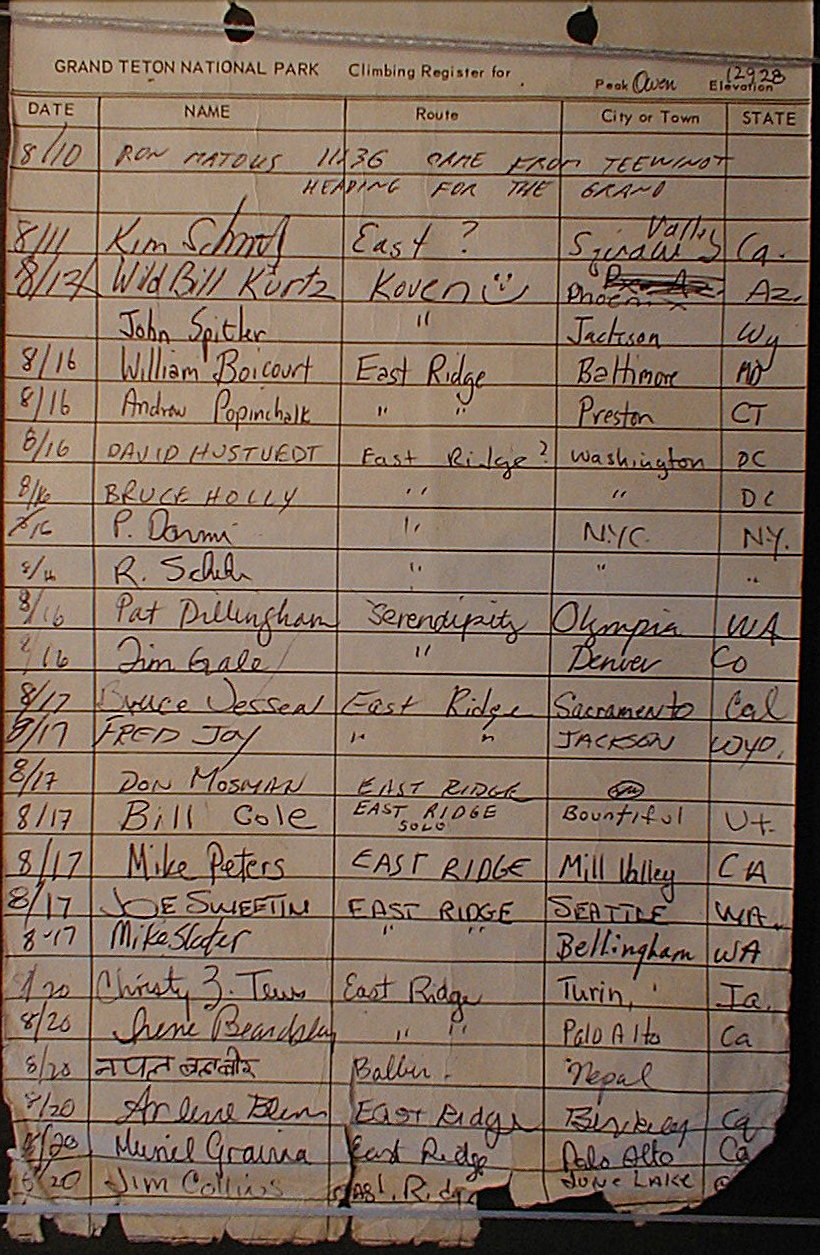 GRAND TETON NATIONAL PARK Climbing Register for Peak Owen Elevation 12928
DATE NAME Route City or Town STATE
8/10 RON MATOUS 1136 CAME FROM TEEWINOT
HEADING FOR THE GRAND
8/11 Kim East ? Valley Ca.
Wild Bill Kurtz Koven Phoenix Az.
John Spitler " Jackson Wy
8/16 William Boicourt East Ridge Baltimore MD
8/16 Andrew Popinchalk " " Preston CT
8/16 DAVID HUSTVEDT East Ridge? Washington DC
8/16 BRUCE HOLLY " " DC
8/16 P. " NYC. N.Y.
8/16 R. " " "
8/16 Pat Dillingham Serendipity Olympia WA
8/16 Jim Gale " Denver Co
8/17 Bruce Jessen East Ridge Sacramento Cal
8/17 FRED JOY " " JACKSON WYO.
8/17 DON MOSMAN EAST RIDGE
8/17 Bill Cole EAST RIDGE SOLO Bountiful Ut.
8/17 Mike Peters EAST RIDGE Mill Valley CA
8/17 JOE SWEETIN EAST RIDGE SEATTLE WA.
8-17 Mike Slater " " Bellingham WA
8/20 Christy Z. Tews East Ridge Turin, Ia.
8/20 Irene Beardsley " " Palo Alto Ca
8/20 Nepal
8/20 Arlene Blum East Ridge Berkeley Ca
8/20 East Ridge Palo Alto Ca
8/20 Jim Collins East Ridge JUNE LAKE